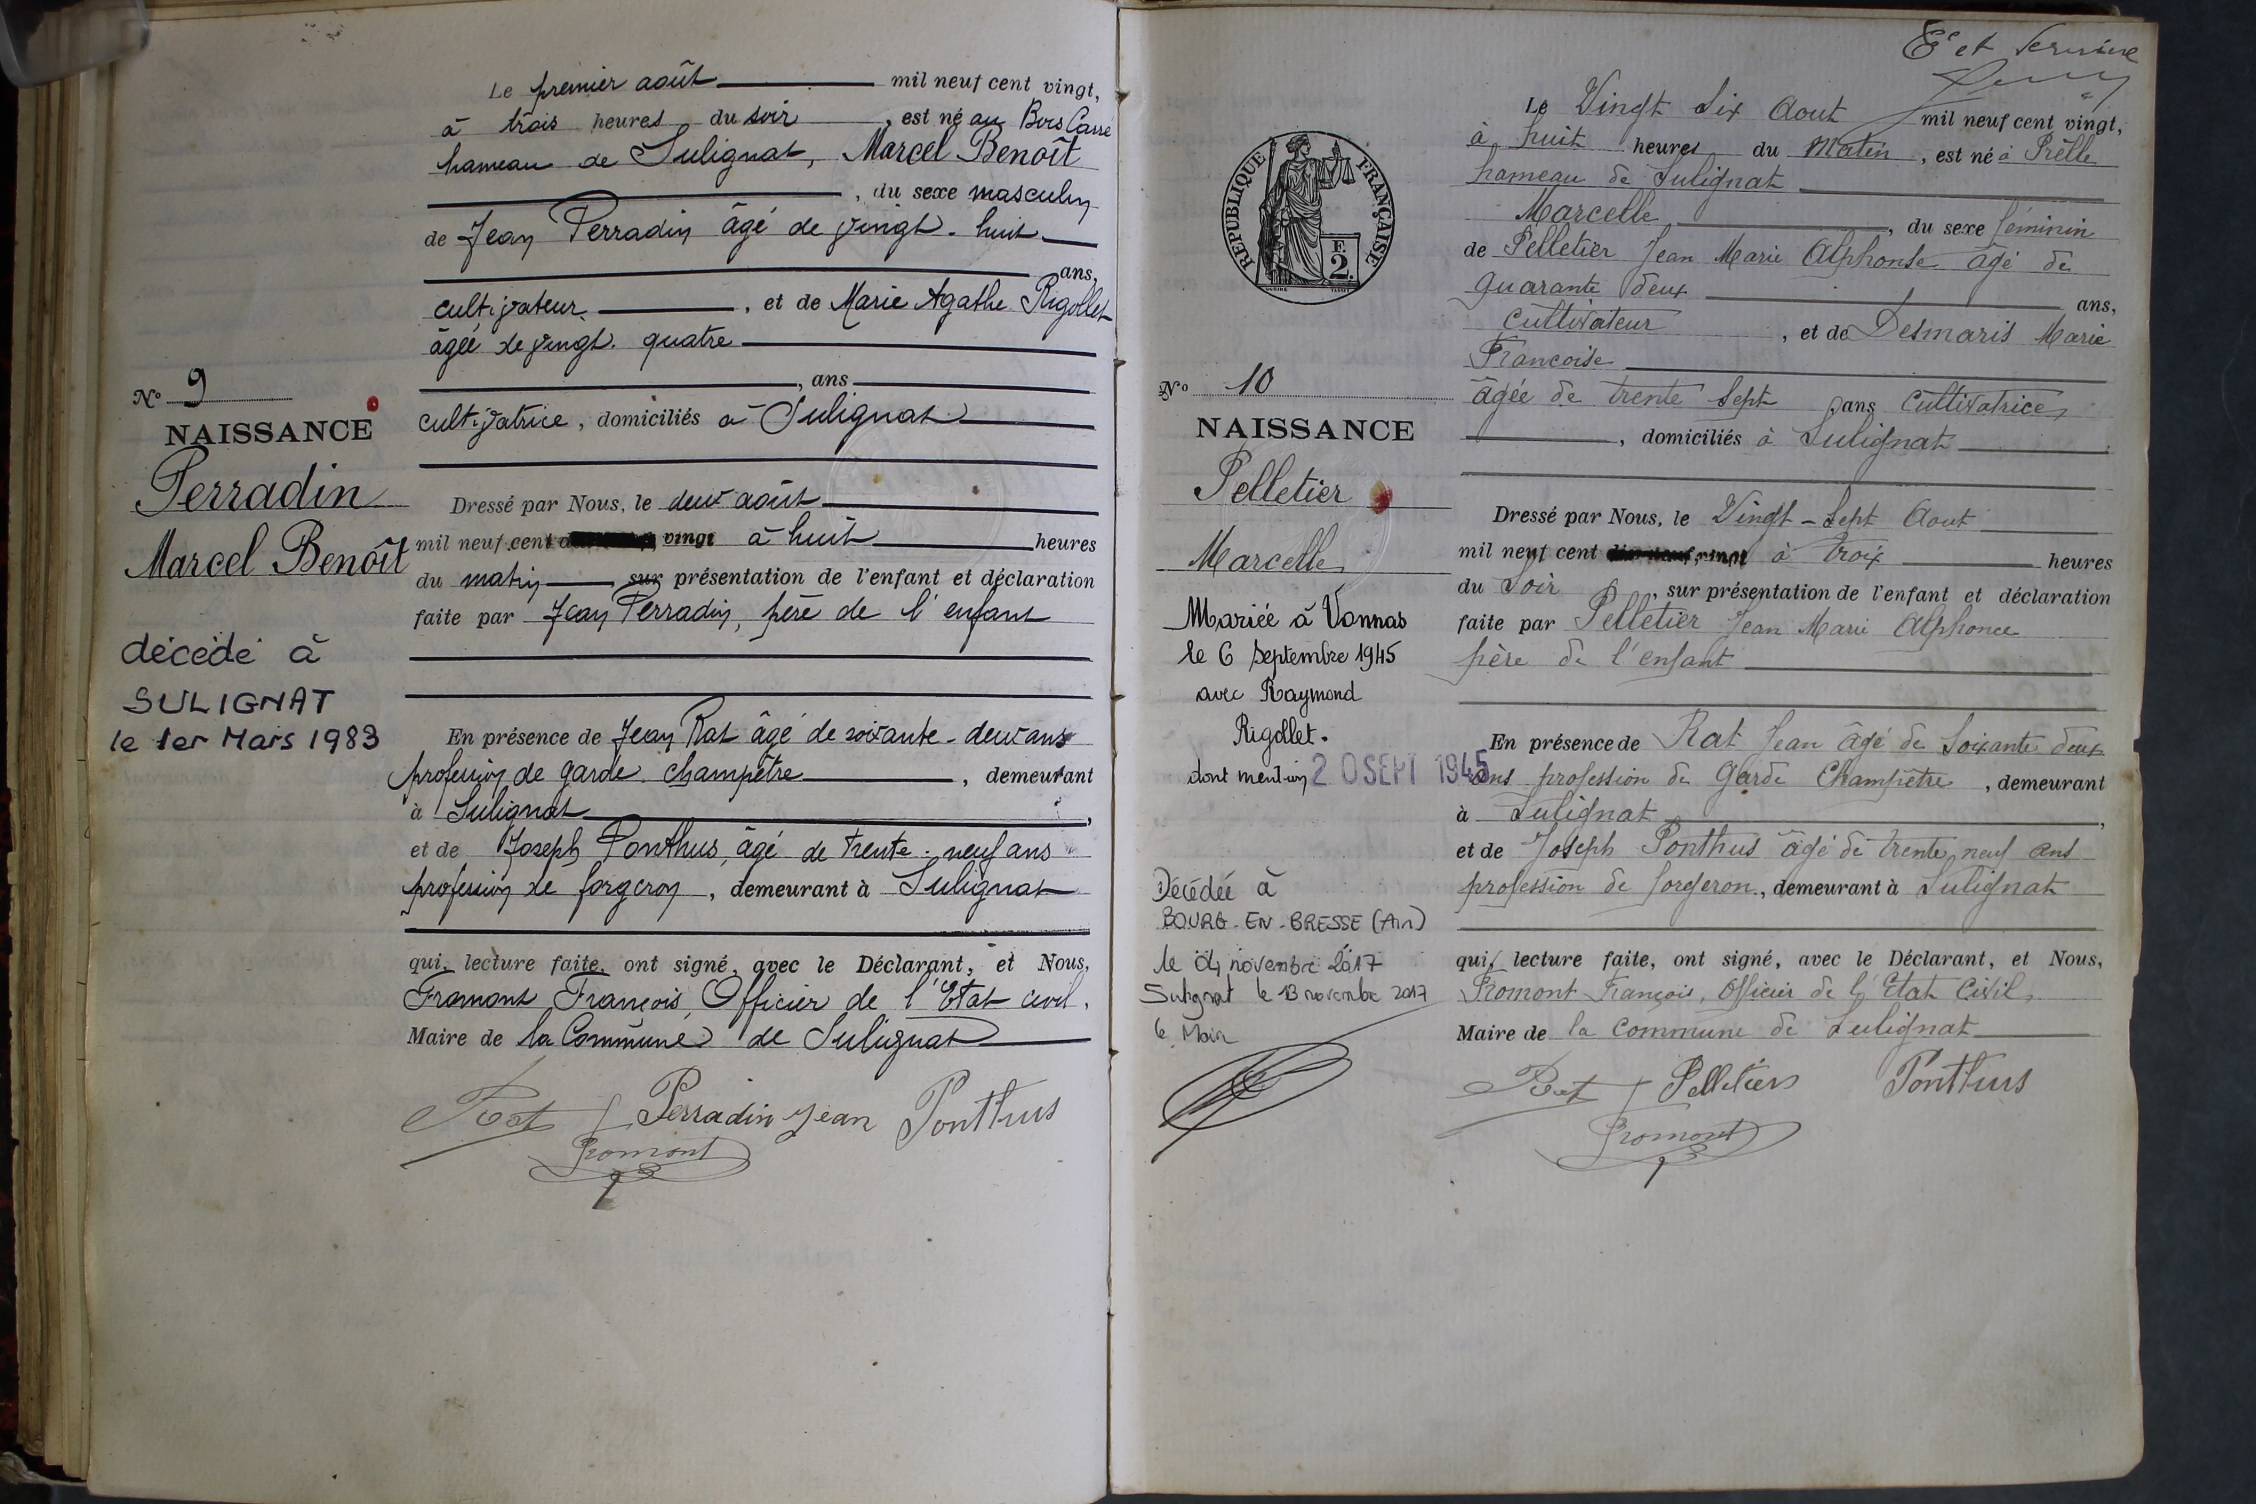 Le premier août mil neuf cent vingt,
à trois heures du soir, est né au Bois Carré
hameau de Sulignat, Marcel Benoît
, du sexe masculin
de Jean Perradin âgé de vingt-huit
ans,
cultivateur, et de Marie Agathe Rigollet
âgée de vingt-quatre
, ans
cultivatrice, domiciliés à Sulignat
No 9
NAISSANCE
Perradin
Marcel Benoît
décédé à
SULIGNAT
le 1er Mars 1983
Dressé par Nous, le deux août
mil neuf cent vingt à huit heures
du matin sur présentation de l'enfant et déclaration
faite par Jean Perradin, père de l'enfant
En présence de Jean Rat âgé de soixante-deux ans
profession de garde champêtre, demeurant
à Sulignat,
et de Joseph Ponthus, âgé de trente-neuf ans
profession de forgeron, demeurant à Sulignat
qui, lecture faite, ont signé, avec le Déclarant, et Nous,
Fromont François, Officier de l'Etat civil,
Maire de la Commune de Sulignat
Rat Perradin Jean Ponthus
Fromont
Le Vingt Six Aout mil neuf cent vingt,
à huit heures du Matin, est né à Prêlle
hameau de Sulignat
Marcelle, du sexe féminin
de Pelletier Jean Marie Alphonse âgé de
quarante deux ans,
cultivateur, et de Desmaris Marie
Francoise
âgée de trente sept ans cultivatrice,
, domiciliés à Sulignat
RÉPUBLIQUE FRANÇAISE
E
2.
No 10
NAISSANCE
Pelletier
Marcelle
Mariée à Vonnas
le 6 Septembre 1945
avec Raymond
Rigollet.
dont mention 20 SEPT 1945
Décédée à
BOURG-EN-BRESSE (Ain)
le novembre 2017
Sulignat le 13 novembre 2017
le Maire
Dressé par Nous, le Vingt-Sept Aout
mil neuf cent vingt à trois heures
du Soir, sur présentation de l'enfant et déclaration
faite par Pelletier Jean Marie Alphonse
père de l'enfant
En présence de Rat Jean âgé de Soixante deux
ans profession de Garde Champêtre, demeurant
à Sulignat,
et de Joseph Ponthus âgé de trente neuf ans
profession de forgeron, demeurant à Sulignat
qui, lecture faite, ont signé, avec le Déclarant, et Nous,
Fromont François, Officier de l'Etat Civil,
Maire de la Commune de Sulignat
Rat Pelletier Ponthus
Fromont